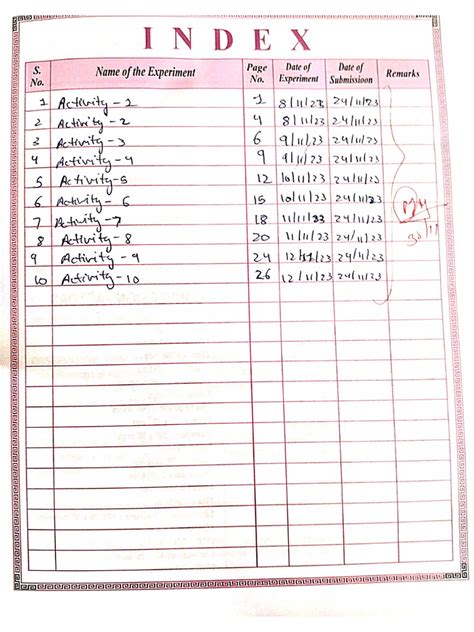 INDEX
S. No. Name of the Experiment Page No. Date of Experiment Date of Submissioon Remarks
1 Activity - 1 1 8/11/23 24/11/23
2 Activity - 2 4 8/11/23 24/11/23
3 Activity - 3 6 9/11/23 24/11/23
4 Activity - 4 9 9/11/23 24/11/23
5 Activity - 5 12 10/11/23 24/11/23
6 Activity - 6 15 10/11/23 24/11/23
7 Activity - 7 18 11/11/23 24/11/23
8 Activity - 8 20 11/11/23 24/11/23
9 Activity - 9 24 12/11/23 24/11/23
10 Activity - 10 26 12/11/23 24/11/23